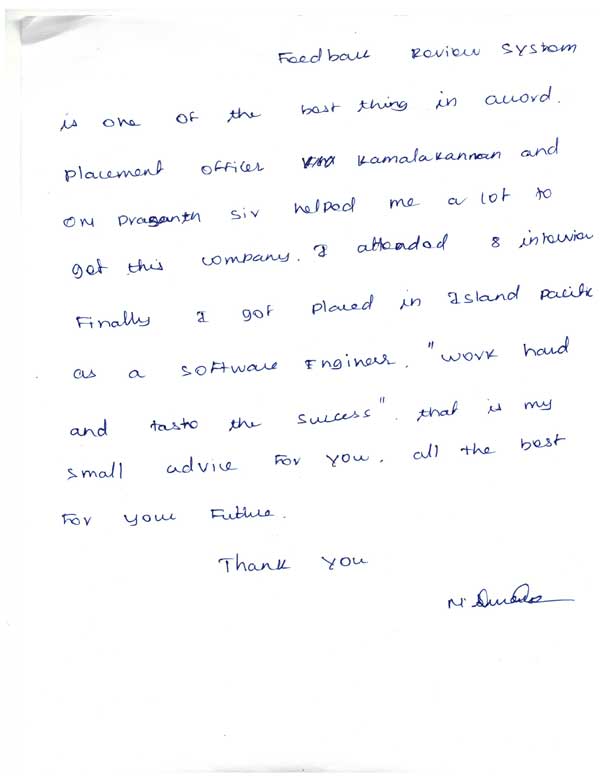 Feedback Review System
is one of the best thing in accord.
Placement officer Kamalakannan and
Prasanth sir helped me a lot to
get this company. I attended 8 interview
Finally I got placed in Island Pacific
as a software Engineer. "work hard
and taste the success". that is my
small advice for you. all the best
for your Future.
Thank you